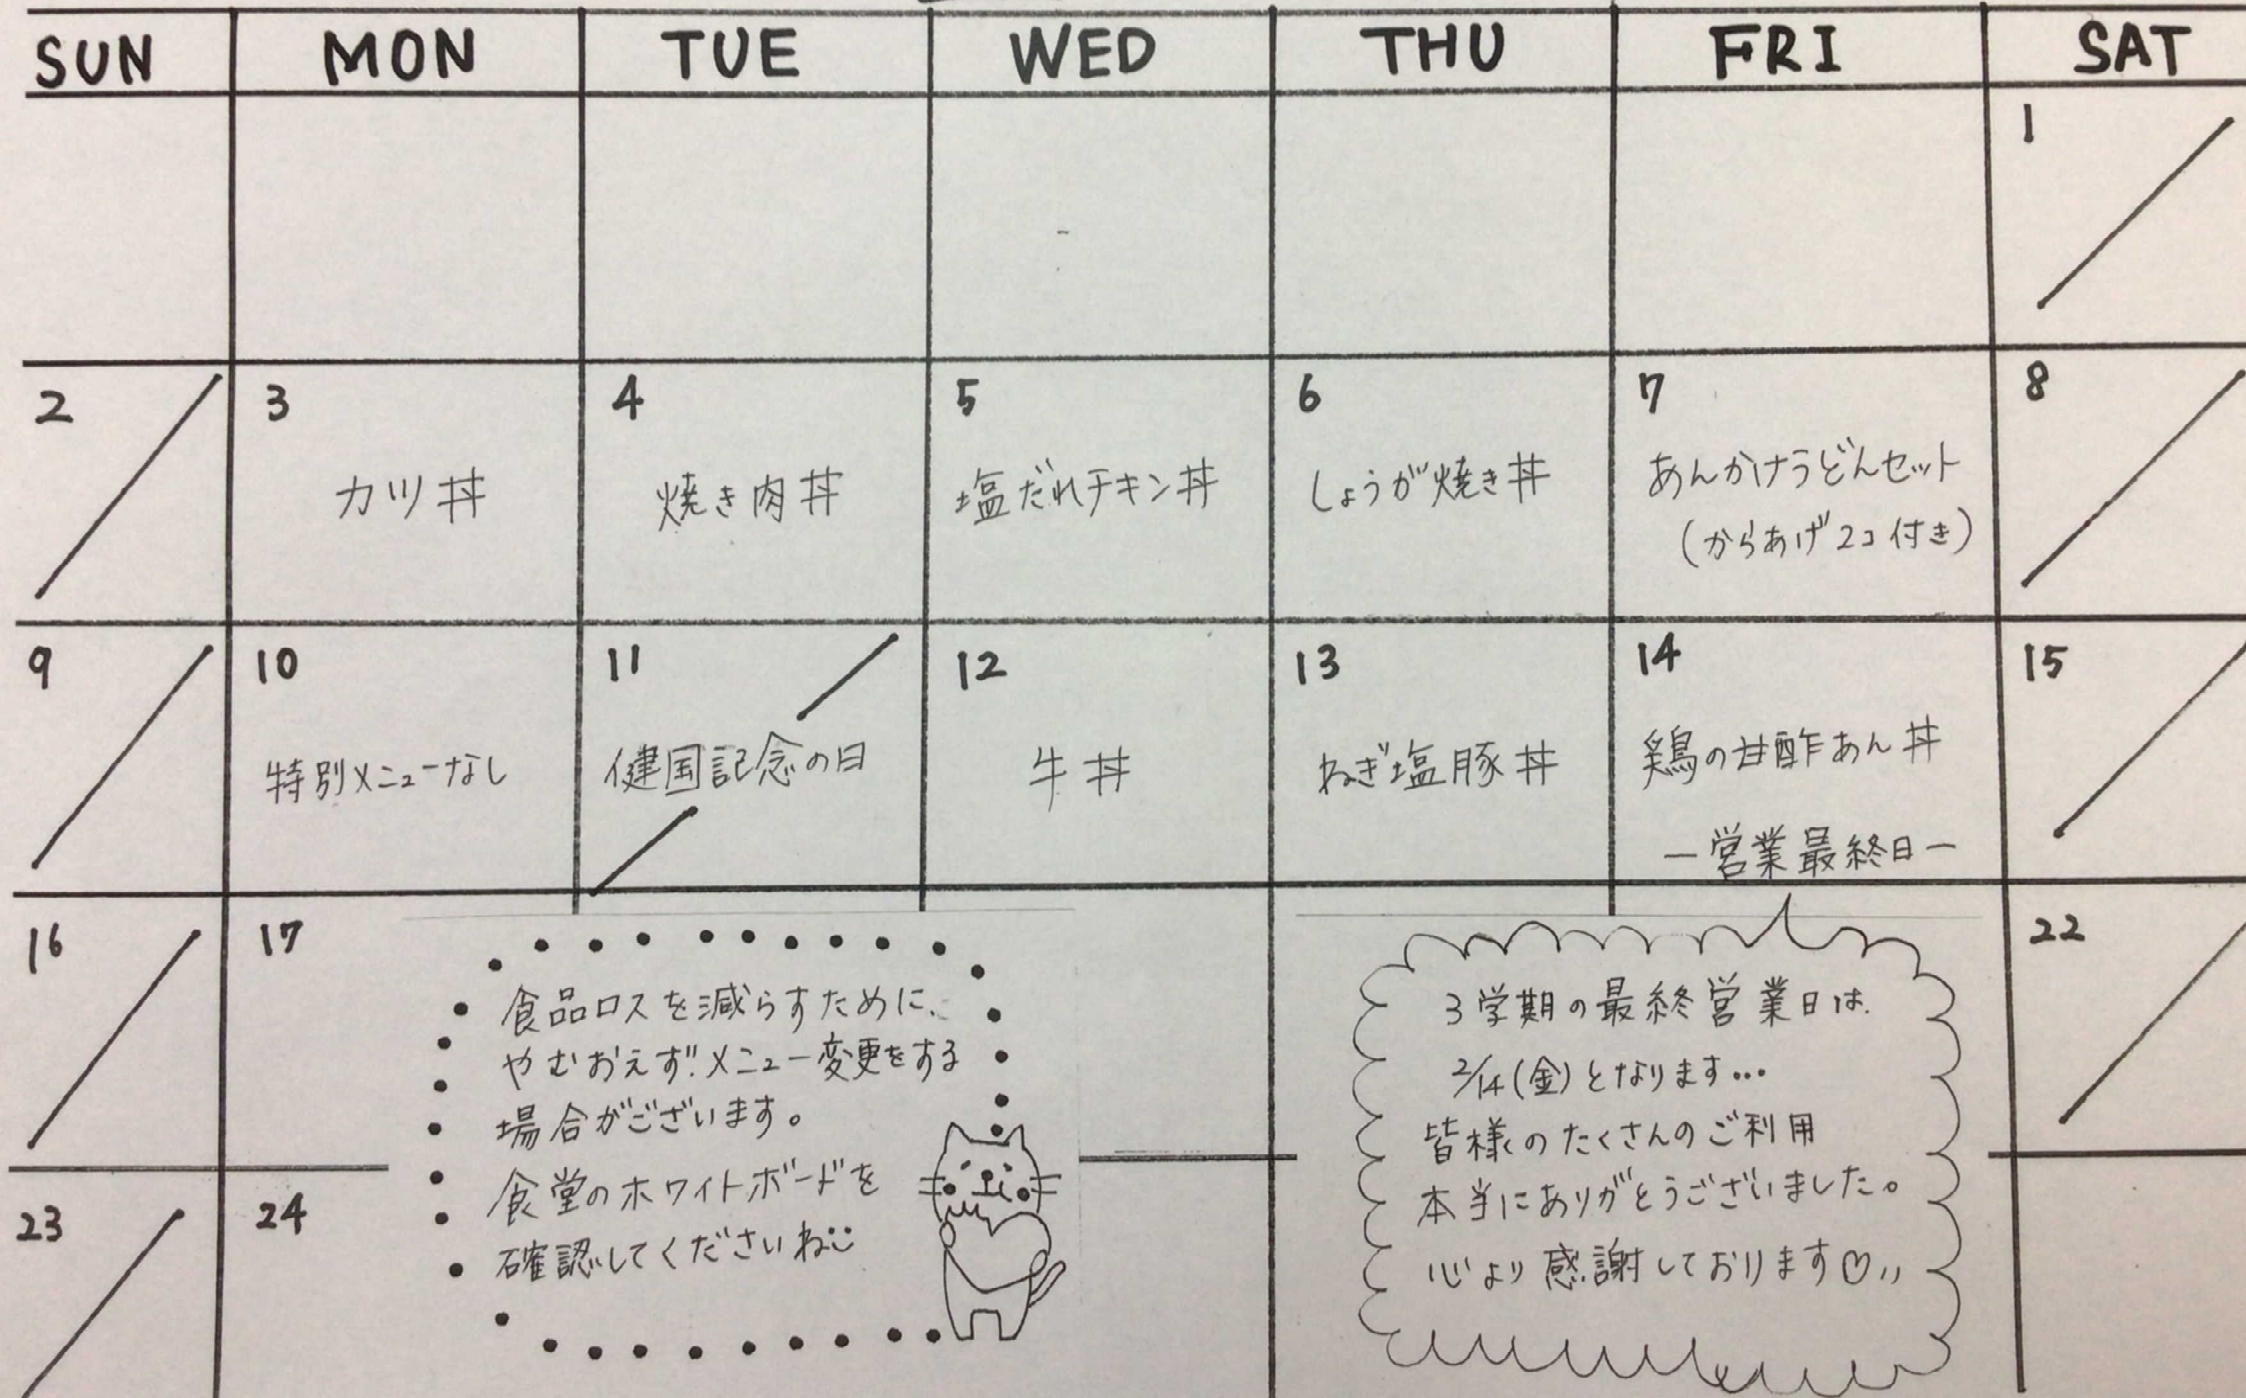 SUN MON TUE WED THU FRI SAT
1
2 3 4 5 6 7 8
カツ丼
焼き肉丼
塩だれチキン丼
しょうが焼き丼
あんかけうどんセット
(からあげ2コ付き)
9 10 11 12 13 14 15
特別メニューなし
健国記念の日
牛丼
ねぎ塩豚丼
鶏の甘酢あん丼
ー営業最終日ー
16 17 22
食品ロスを減らすために、
やむおえず!!メニュー変更をする
場合がございます。
食堂のホワイトボードを
確認してくださいね
3学期の最終営業日は、
2/14(金)となります…
皆様のたくさんのご利用
本当にありがとうございました。
心より感謝しております♡〃
23 24